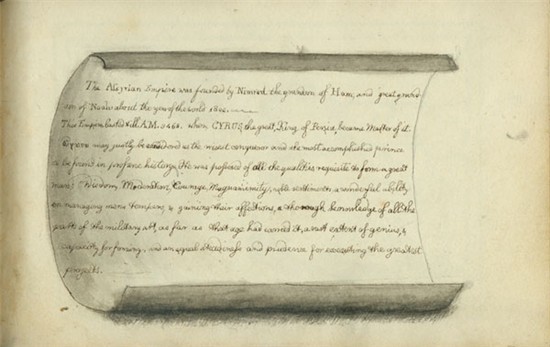 The Assyrian Empire was founded by Nimrod, the grandson of Ham, and great grand
son of Noah about the year of the world 1800.
This Empire lasted till A.M. 3468. when CYRUS, the great, King of Persia, became Master of it.
Cyrus may justly be as the most conqueror and the most accomplished prince
to be found in profane history. He was possessed of all the qualities requisite to form a great
man: Wisdom, Moderation, Courage, Magnanimity, noble sentiments a wonderful ability
in managing mens tempers, & gaining their affections, a thorough knowledge of all the
parts of the military art, as far as that age had carried it, a vast extent of genius, &
capacity for forming, and an equal steadiness and prudence for executing the greatest
projects.